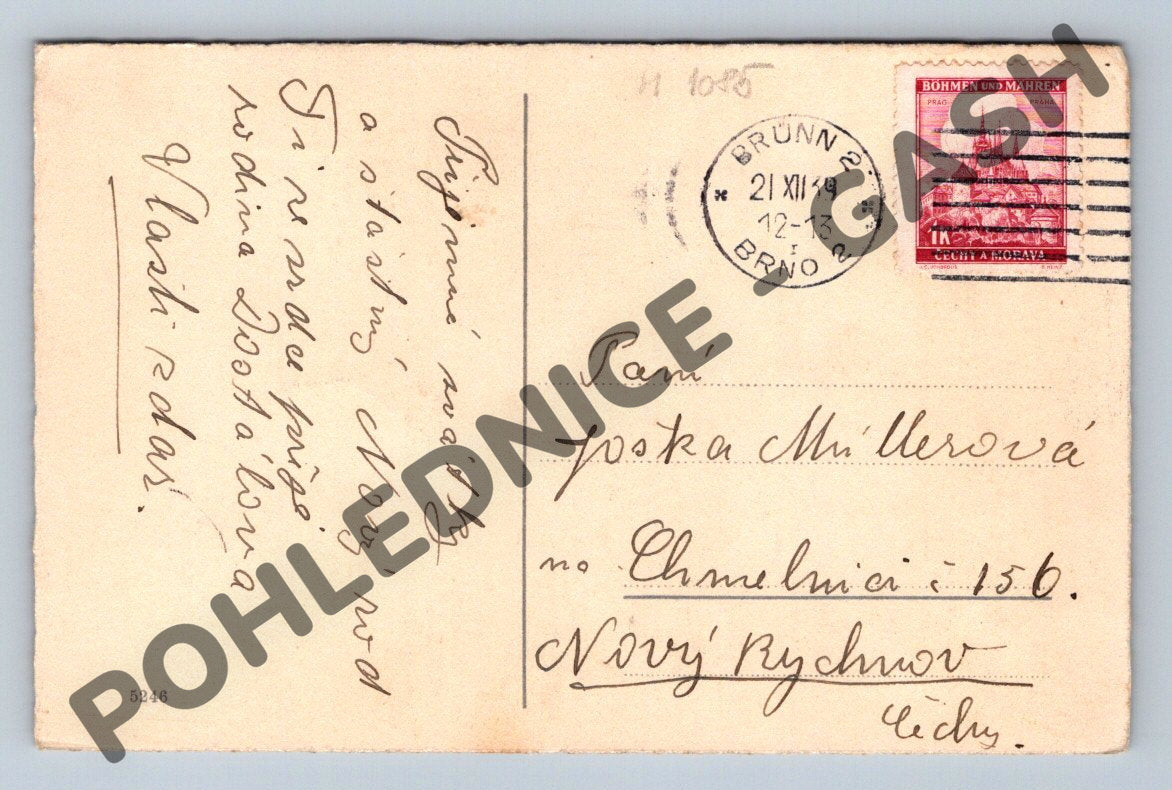 Příjemné svátky
a šťastný Nový rok
Ti ze srdce přeje
rodina Dostálova
Vlasti zdar.
5246
M 1085
BRÜNN 2
21 XII 39
12-13
BRNO 2
BÖHMEN UND MÄHREN
PRAG PRAHA
1K
ČECHY A MORAVA
Paní
Joska Müllerová
na Chmelnici č 156.
Nový Rychnov
Čechy.
POHLEDNICE - GASH